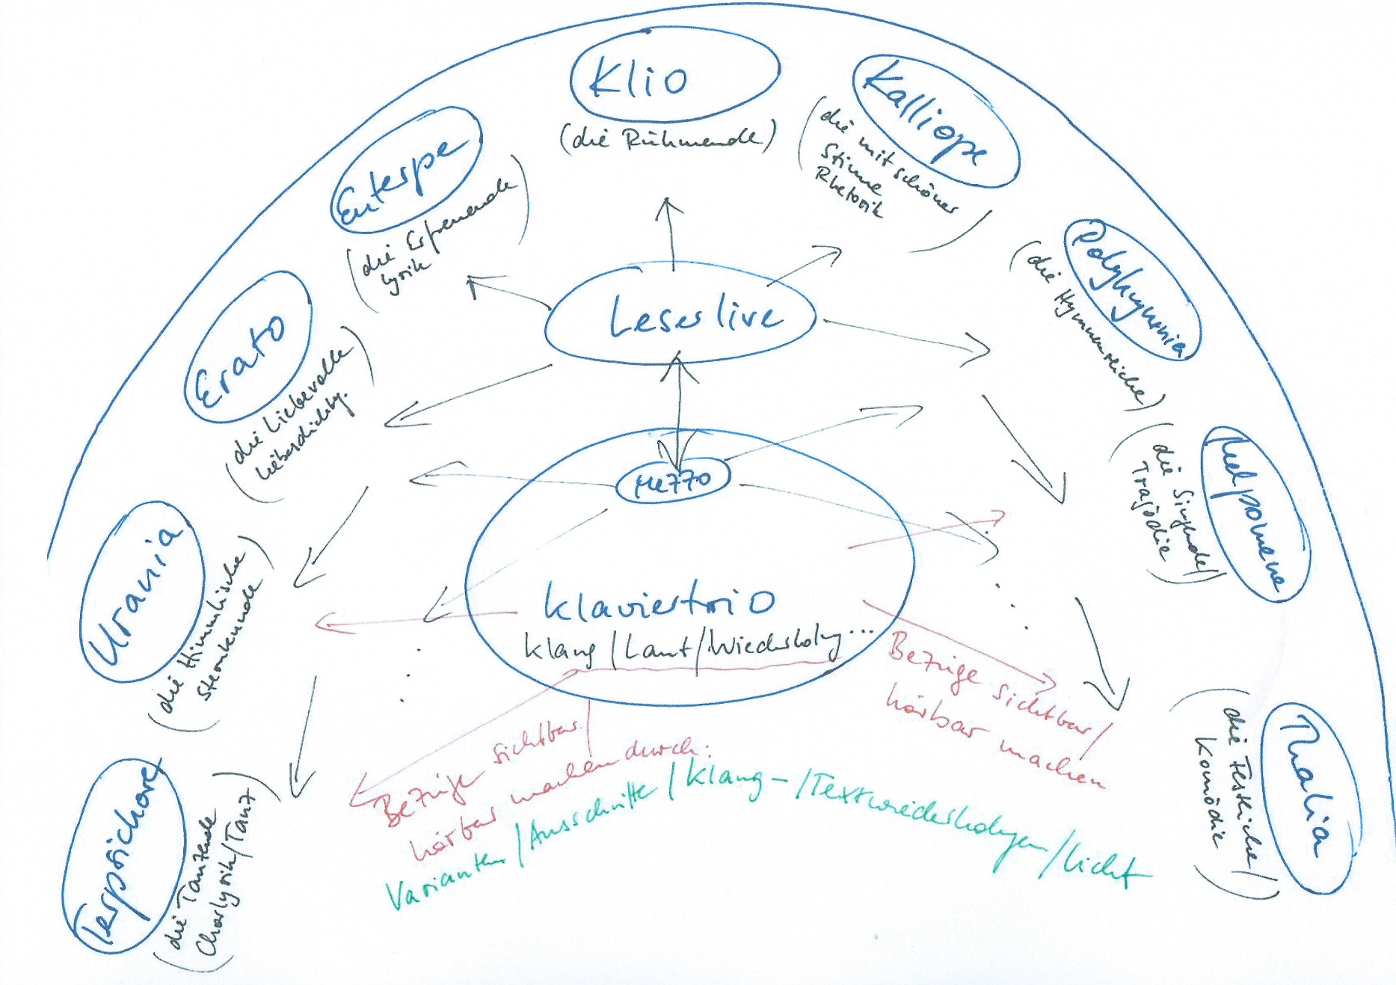 Klio
(die Rühmende)
Kalliope
(die mit schöner
Stimme
Rhetorik
)
Euterpe
(die Erfreuende)
Lyrik
Polyhymnia
(die Hymnenreiche)
Erato
(die Liebevolle)
Liebesdichtg.
Leser live
Melpomene
(die Singende/
Tragödie)
Mezzo
Urania
(die Himmlische)
Sternkunde
Klaviertrio
Klang/Laut/Wiederholg...
Terpsichore
(die Tanzende
Chorlyrik/Tanz)
Thalia
(die Festliche/
Komödie)
Bezüge sichtbar/
hörbar machen
Bezüge sichtbar/
hörbar machen durch:
Varianten/Ausschnitte/Klang-/Textwiederholungen/Licht